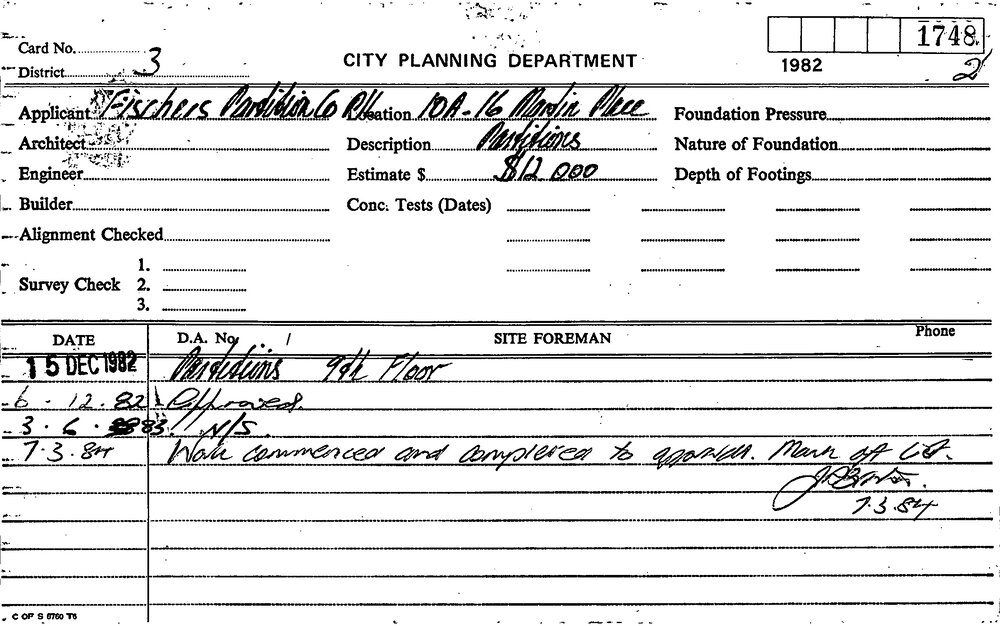 1748
Card No. 3
District
CITY PLANNING DEPARTMENT
1982
2
Applicant Fischers Partition Co P/L Location 10A-16 Martin Place Foundation Pressure
Architect Description Partitions Nature of Foundation
Engineer Estimate $ $12 000 Depth of Footings
Builder Conc. Tests (Dates)
Alignment Checked
1.
Survey Check 2.
3.
DATE D.A. No. / SITE FOREMAN Phone
15 DEC 1982 Partitions 9th Floor
6.12.82 Approved.
3.6.83 N/S.
7.3.84 Work commenced and completed to approval. Mark off
7.3.84
C OF S 6760 T6